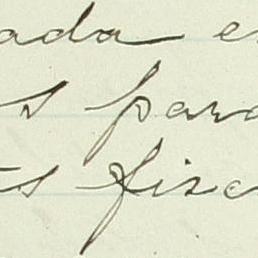 ada e
s para
s fisc